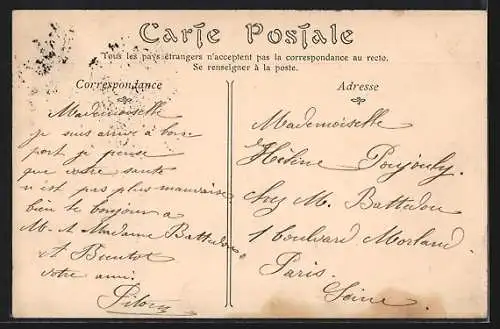 Carte Postale
Tous les pays étrangers n'acceptent pas la correspondance au recto.
Se renseigner à la poste.
Correspondance
Mademoiselle
je suis arrivé a bon
port je pense
que votre santé
n'est pas plus mauvaise
bien le bonjour a
M. et Madame Battedou
A Bientot
votre ami
Adresse
Mademoiselle
Hélène
chez M. Battedou
1 boulvard Morland
Paris.
Seine.